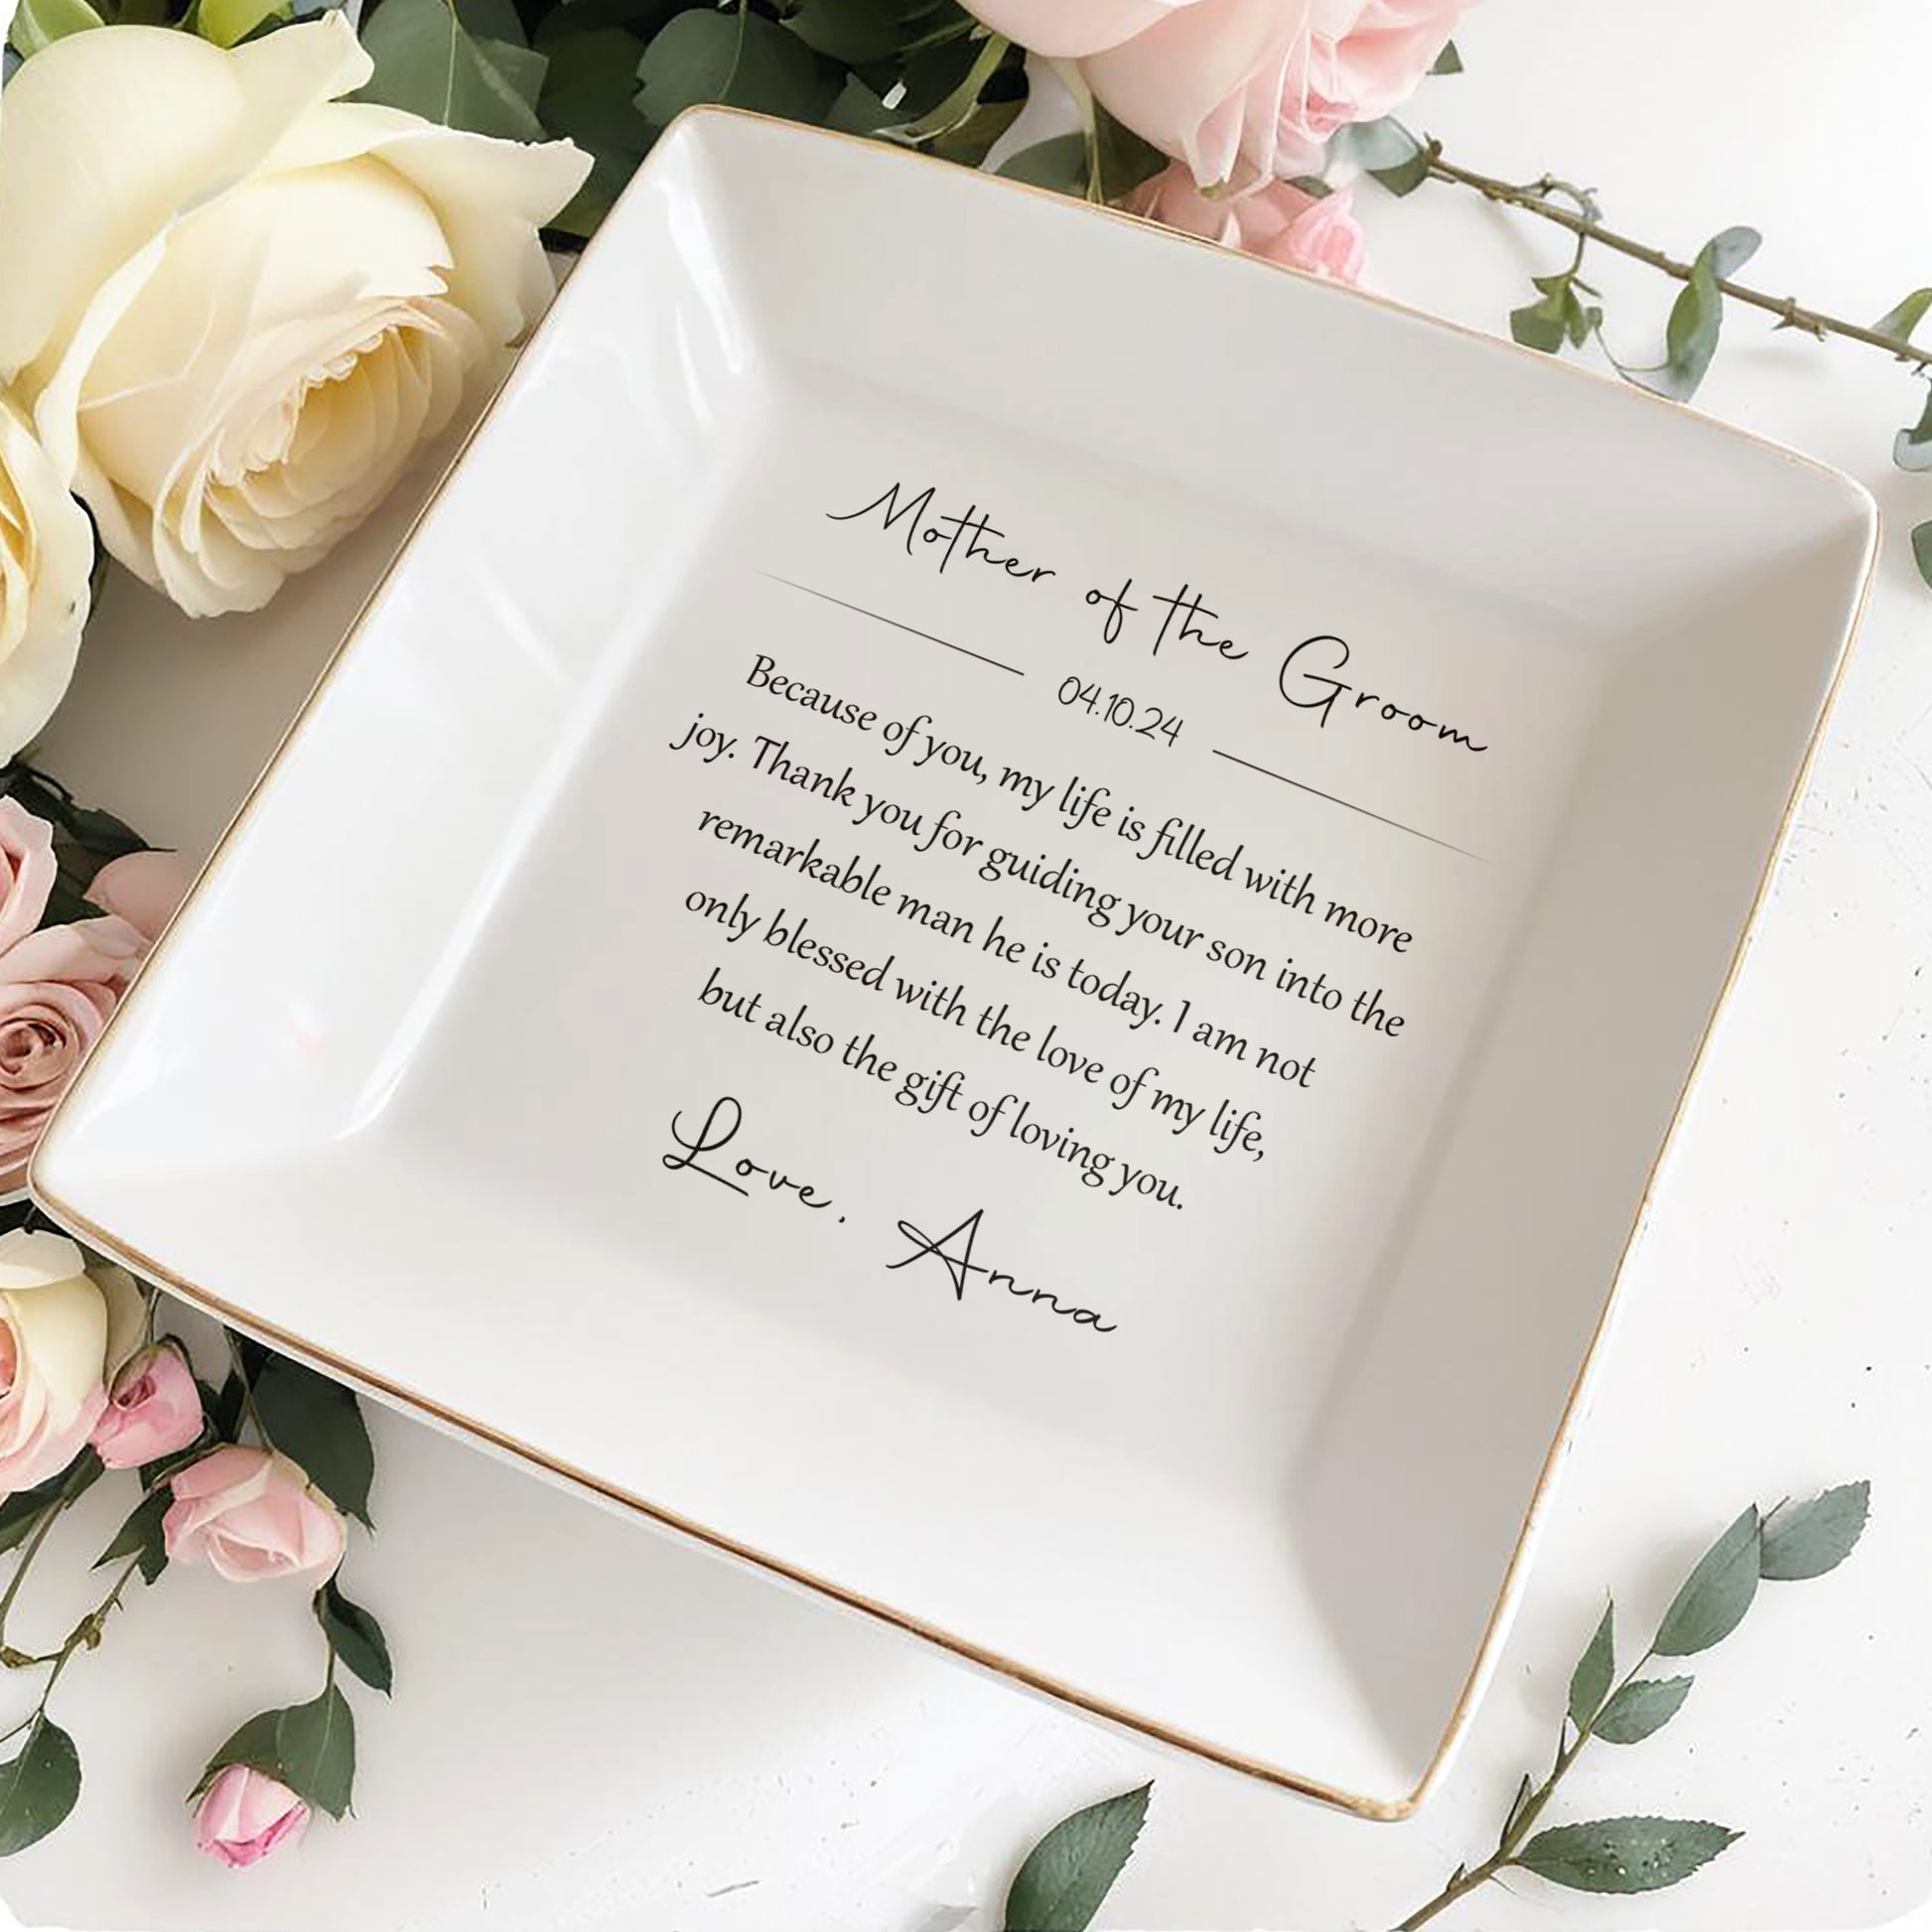 Mother of the Groom
04.10.24
Because of you, my life is filled with more
joy. Thank you for guiding your son into the
remarkable man he is today. I am not
only blessed with the love of my life,
but also the gift of loving you.
Love, Anna